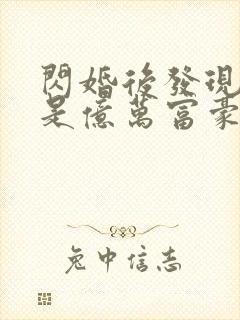 閃婚後發現
是億萬富豪
兔中信志